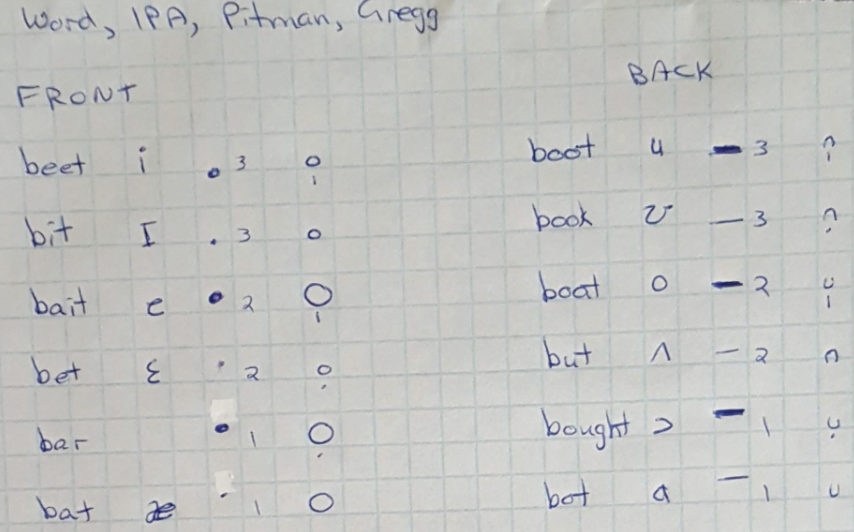 Word, IPA, Pitman, Gregg
FRONT BACK
beet i 3 boot u 3
bit I 3 book ʊ 3
bait e 2 boat o 2
bet ɛ 2 but ʌ 2
bar 1 bought ɔ 1
bat æ 1 bot a 1